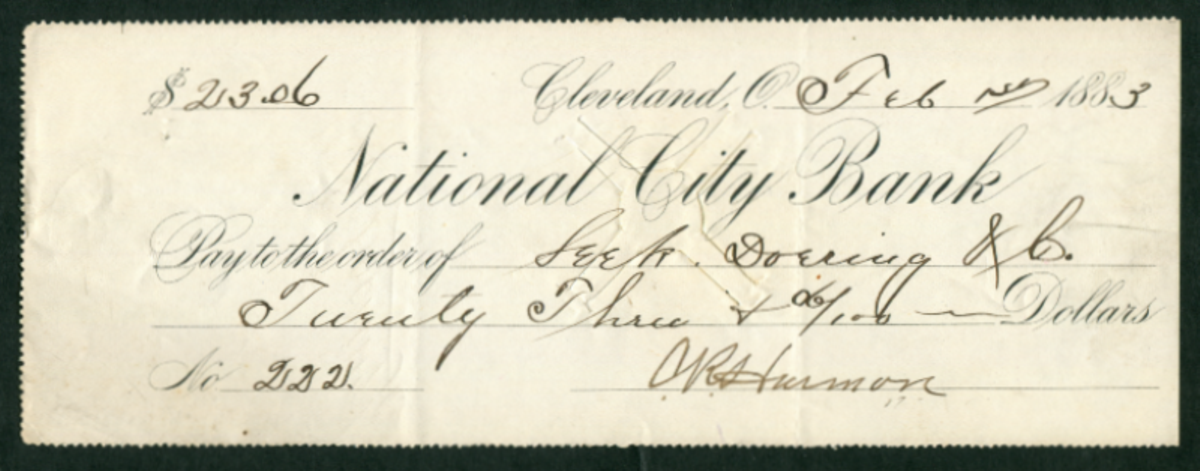 $ 23.06 Cleveland, O. Feb 1883
National City Bank
Pay to the order of Doering & C.
Twenty Three & 06/100 Dollars
No 222.
Harmon